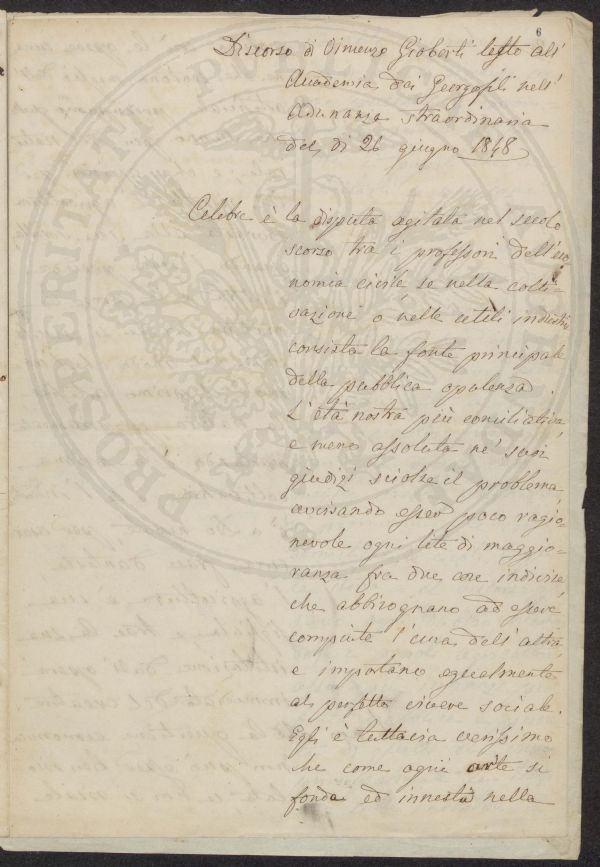 6
Discorso di Vincenzo Gioberti letto all'
Accademia dei Georgofili nell'
Adunanza straordinaria
del dì 26 giugno 1848
Celebre è la disputa agitata nel secolo
scorso tra i professori dell'eco
nomia civile se nella colti-
vazione o nelle utili industrie
consista la fonte principale
della pubblica opulenza.
L'età nostra più conciliativa
e meno assoluta ne' suoi
giudizi sciolse il problema,
avvisando esser poco ragio-
nevole ogni lite di maggio-
ranza fra due cose indivise
che abbisognano ad essere
compiute l'una dell'altra,
e importano egualmente
al perfetto vivere sociale.
Egli è tuttavia verissimo
che come ogni arte si
fonda ed innesta nella
PROSPERITATI PUBLICAE